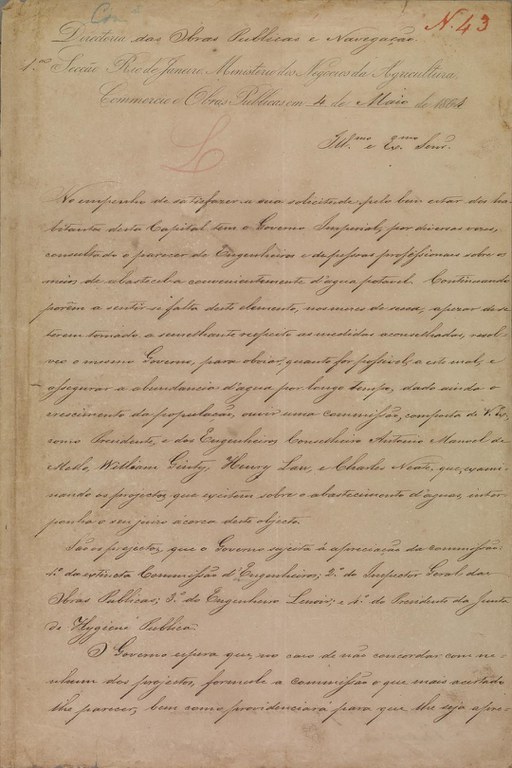 N. 43
Directoria das Obras Publicas e Navegação.
1.ª Secção. Rio de Janeiro. Ministerio dos Negocios da Agricultura,
Commercio e Obras Publicas em 4 de Maio de 1864
Ill.mo e Ex.mo Senr.
No empenho de satisfazer a sua solicitude pelo bem estar dos ha-
bitantes desta Capital tem o Governo Imperial, por diversas vezes,
consultado o parecer de Engenheiros e de pessoas profissionaes sobre os
meios de abastecel-a convenientemente d'agua potavel. Continuando
porêm a sentir-se falta deste elemento, nos mezes de secca, apezar de se
terem tomado a semelhante respeito as medidas aconselhadas, resol-
veo o mesmo Governo, para obviar, quanto for possivel, a este mal, e
assegurar a abundancia d'agua por longo tempo, dado ainda o
crescimento da população, ouvir uma commissão, composta de V. Ex.
como Presidente, e dos Engenheiros Conselheiro Antonio Manoel de
Mello, William Ginty, Henry Law, e Charles Neate, que, exami-
nando os projectos que existem sobre o abastecimento d'aguas, inter-
ponha o seu juizo ácerca deste objecto.
São os projectos, que o Governo sugeita á apreciação da commissão:
1.º da extincta Commissão d'Engenheiros; 2.º do Inspector Geral das
Obras Publicas; 3.º do Engenheiro; e 4.º do Presidente da Junta
de Hygiene Publica.
O Governo espera que, no caso de não concordar com ne-
nhum dos projectos, formule a commissão o que mais acertado
lhe parecer, bem como providenciará para que lhe seja apre-